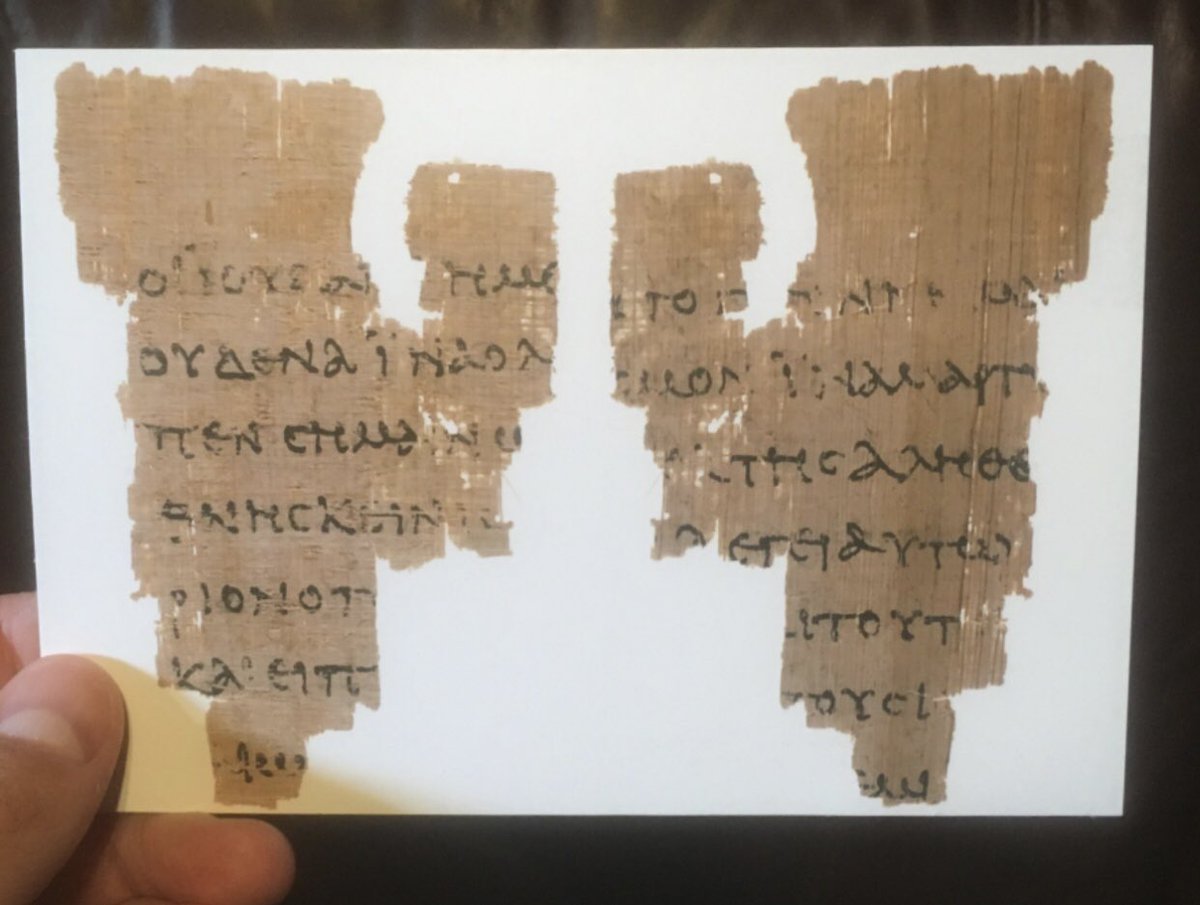 ΟΙΙΟΥΔΑΙ ΗΜΕ
ΟΥΔΕΝΑΪΝΑΟΛ
ΠΕΝCΗΜΑΙΝΩ
ΘΝΗCΚΕΙΝ
ΡΙΟΝΟΠ
ΚΑΙΕΙΠ
ΤΟ
CΜΟΝΪΝΑΜΑΡΤ
ΤΗCΑΛΗΘΕ
ΛΕΓΕΙΑΥΤΩ
ΑΙΤΟΥΤ
ΤΟΥCΙ
ΕΜΙ